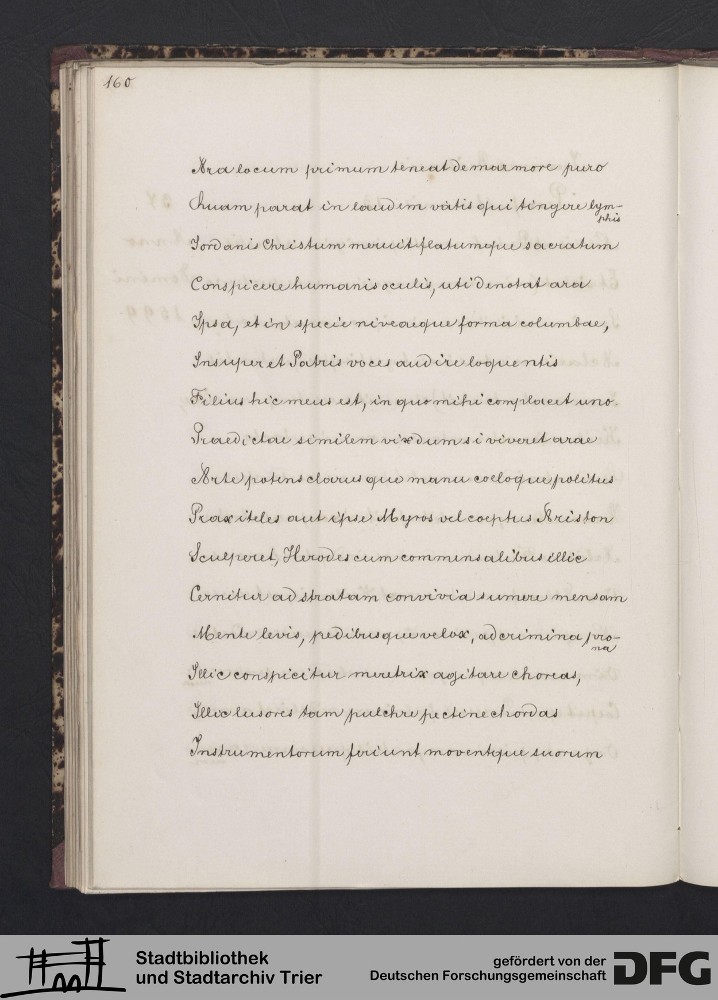 160
Ara locum primum teneat de marmore puro
Quam parat in laudem vatis qui tingere lym-
phis
Jordanis Christum meruit flatumque sacratum
Conspicere humanis oculis, uti denotat ara
Ipsa, et in specie niveaeque forma columbae,
Insuper et Patris voces audire loquentis
Filius hic meus est, in quo mihi complacet uno.
Praedictae similem vix dum si viveret arae
Arte potens clarusque manu coeloque politus
Praxiteles aut ipse Myros vel coeptus Ariston
Sculperet, Herodes cum commensalibus illic
Cernitur ad stratam convivia sumere mensam
Mente levis, pedibusque velox, ad crimina pro-
na
Illic conspicitur meretrix agitare choreas,
Illic lusores tam pulchre pectine chordas
Instrumentorum feriunt moventque suorum
Stadtbibliothek
und Stadtarchiv Trier
gefördert von der
Deutschen Forschungsgemeinschaft
DFG